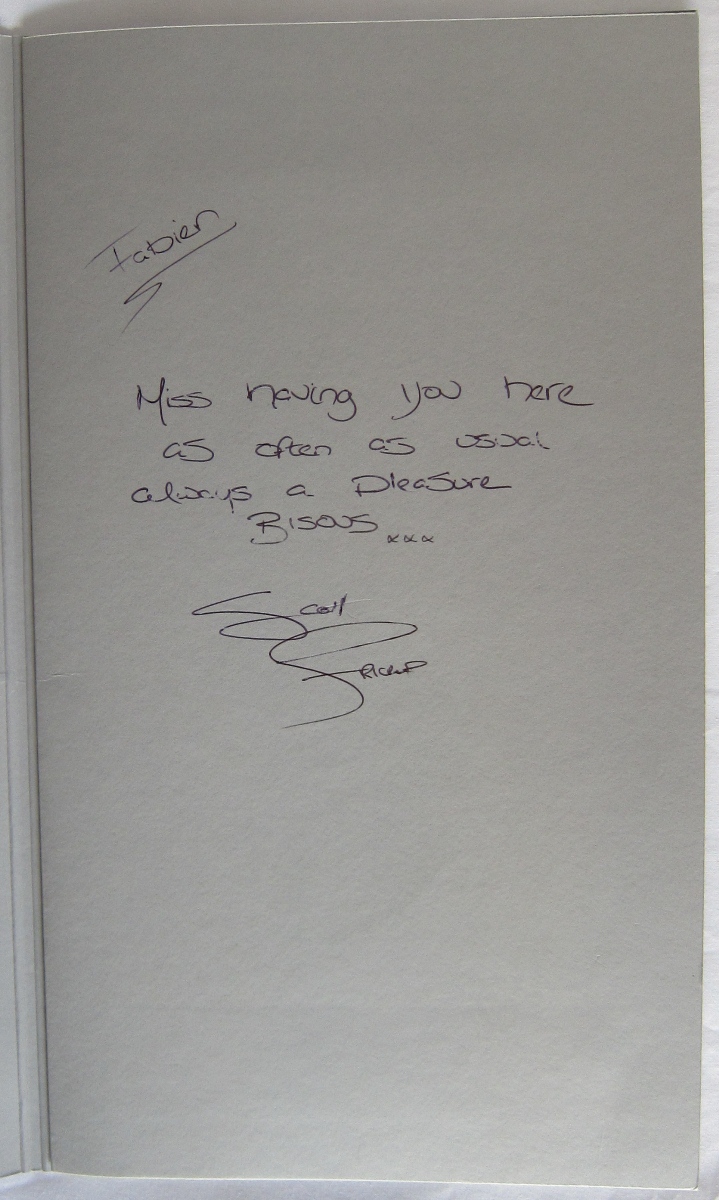 Fabien
Miss having you here
as often as usual
always a Pleasure
Bisous...xxx
Scott
Price